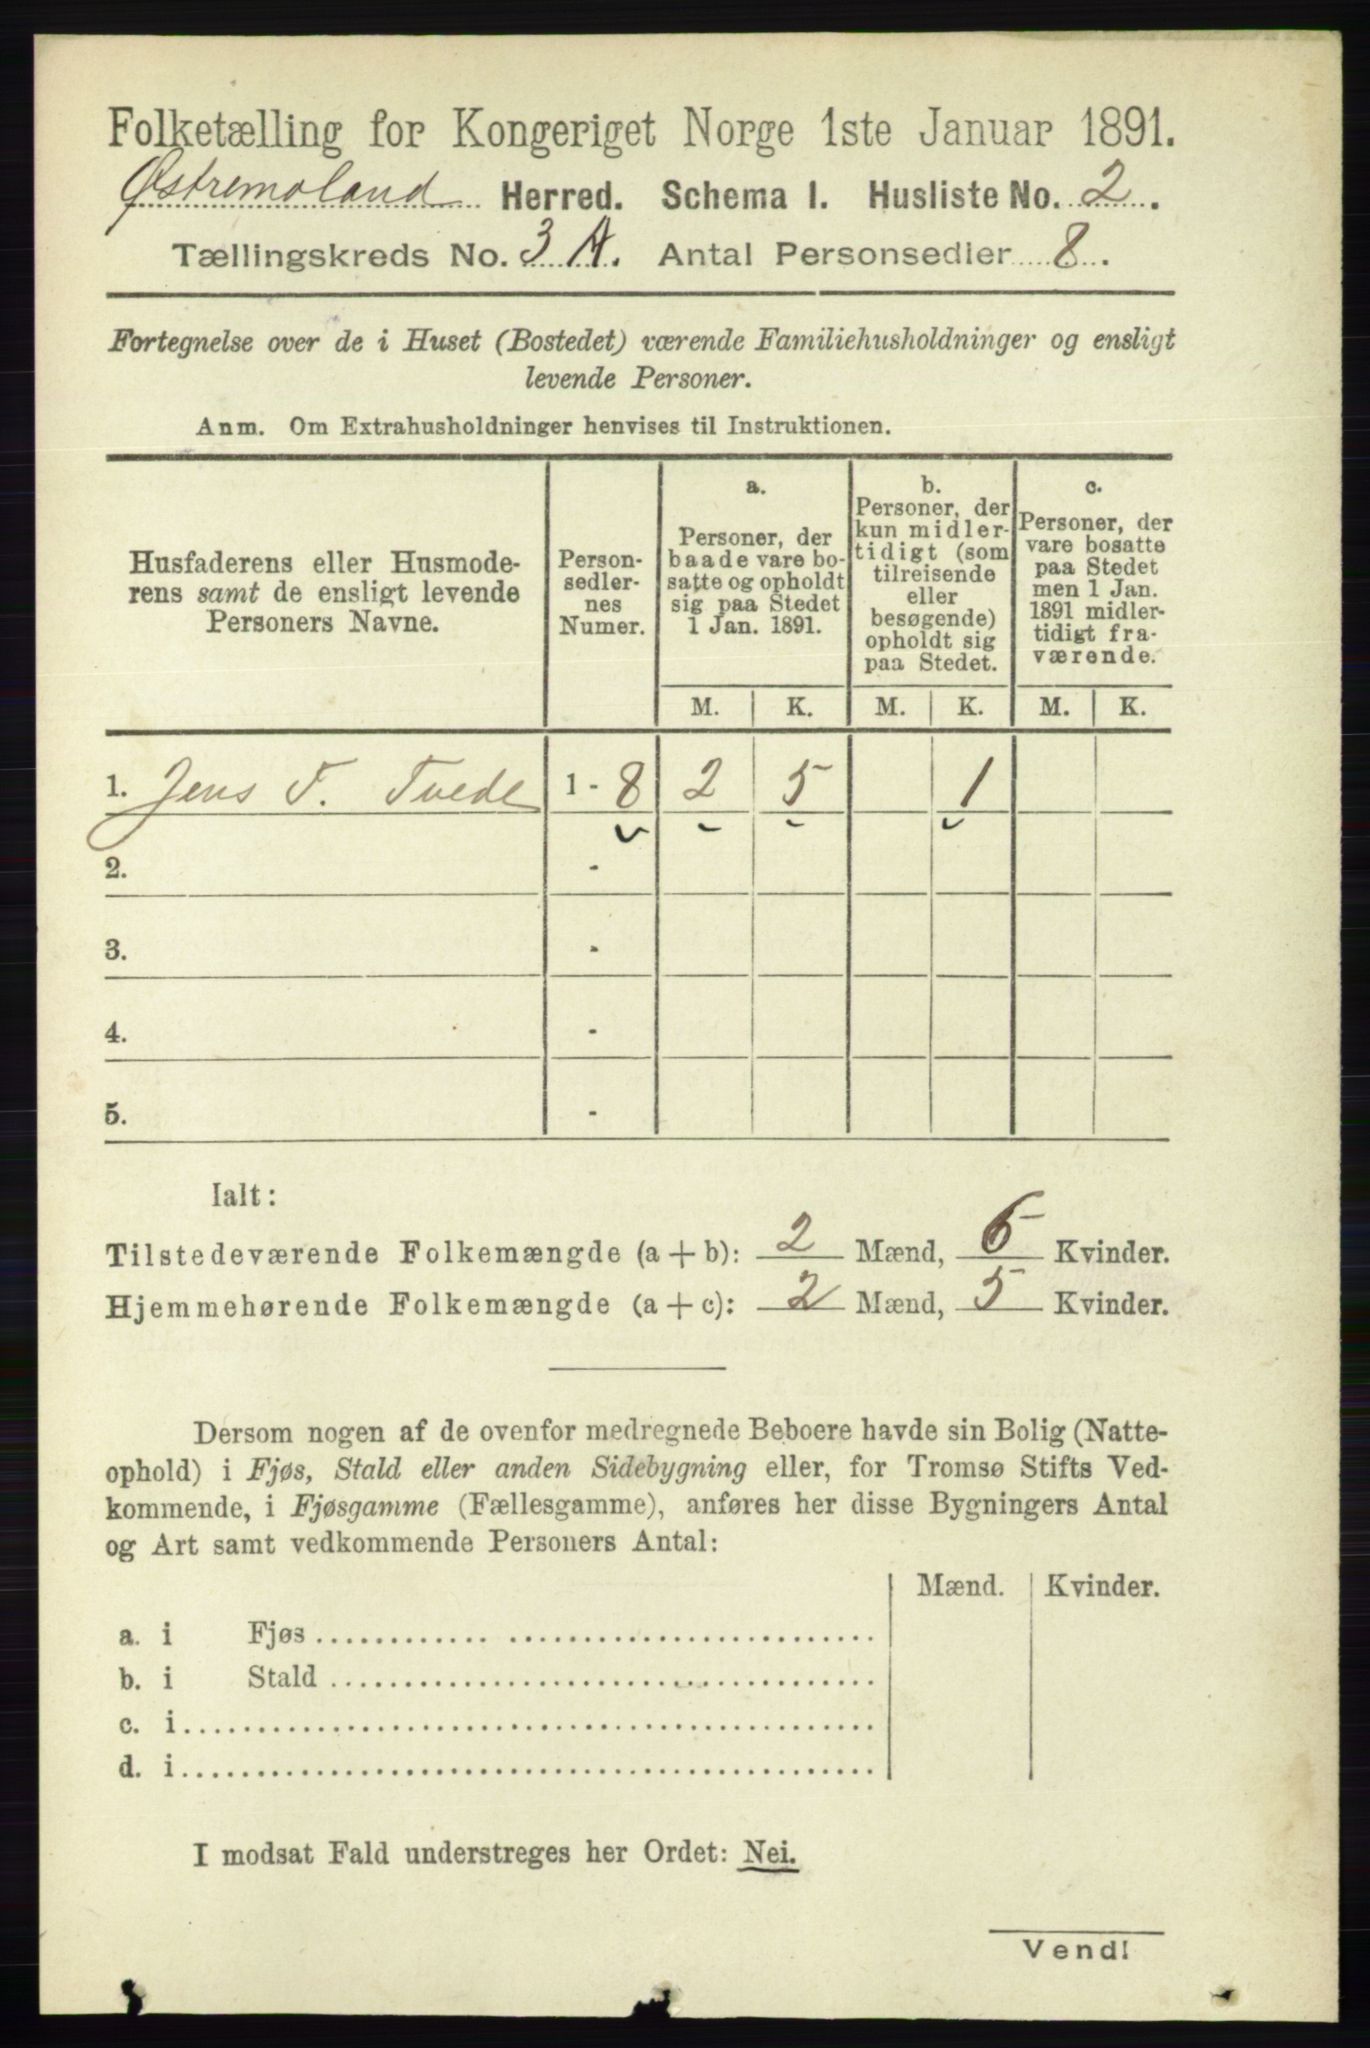 Folketælling for Kongeriget Norge 1ste Januar 1891.
Østremoland Herred. Schema I. Husliste No. 2.
Tællingskreds No. 3 A. Antal Personsedler 8.
Fortegnelse over de i Huset (Bostedet) værende Familiehusholdninger og ensligt
levende Personer.
Anm. Om Extrahusholdninger henvises til Instruktionen.
Husfaderens eller Husmode-
rens samt de ensligt levende
Personers Navne.
Person-
sedler-
nes
Numer.
a.
Personer, der
baade vare bo-
satte og opholdt
sig paa Stedet
1 Jan. 1891.
b.
Personer, der
kun midler-
tidigt (som
tilreisende
eller
besøgende)
opholdt sig
paa Stedet.
c.
Personer, der
vare bosatte
paa Stedet
men 1 Jan.
1891 midler-
tidigt fra-
værende.
M. K. M. K. M. K.
1. Jens F. Tvede 1 - 8 2 5 1
2. -
3. -
4. -
5. -
Ialt:
Tilstedeværende Folkemængde (a + b): 2 Mænd, 6 Kvinder.
Hjemmehørende Folkemængde (a + c): 2 Mænd, 5 Kvinder.
Dersom nogen af de ovenfor medregnede Beboere havde sin Bolig (Natte-
ophold) i Fjøs, Stald eller anden Sidebygning eller, for Tromsø Stifts Ved-
kommende, i Fjøsgamme (Fællesgamme), anføres her disse Bygningers Antal
og Art samt vedkommende Personers Antal:
Mænd. Kvinder.
a. i Fjøs
b. i Stald
c. i
d. i
I modsat Fald understreges her Ordet: Nei.
Vend!